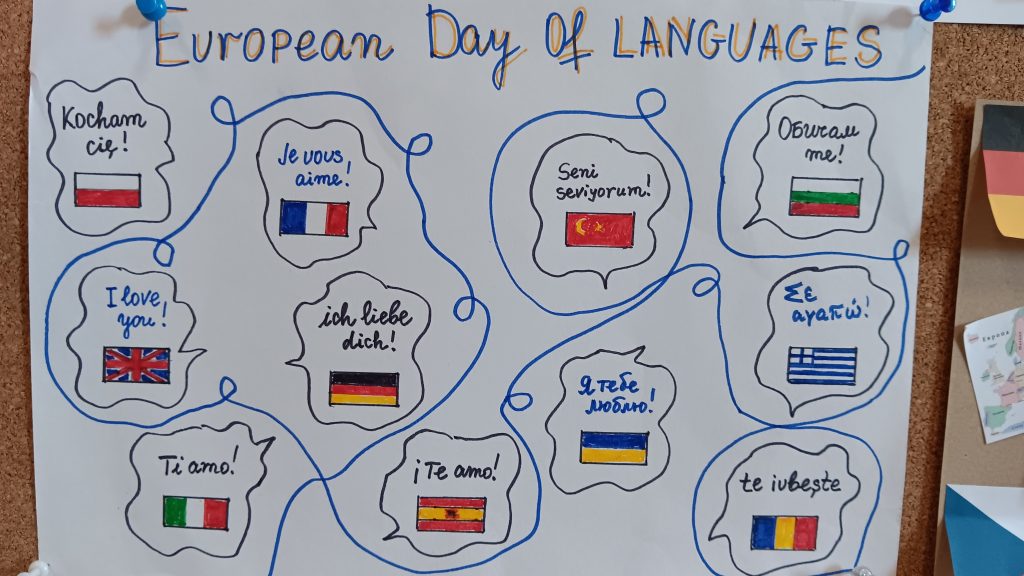 European Day Of LANGUAGES
Kocham
cię!
Je vous
aime!
Seni
seviyorum!
Обичам
те!
I love
you!
ich liebe
dich!
Σε
αγαπώ!
Я тебе
люблю!
Ti amo!
¡Te amo!
te iubește
Европа